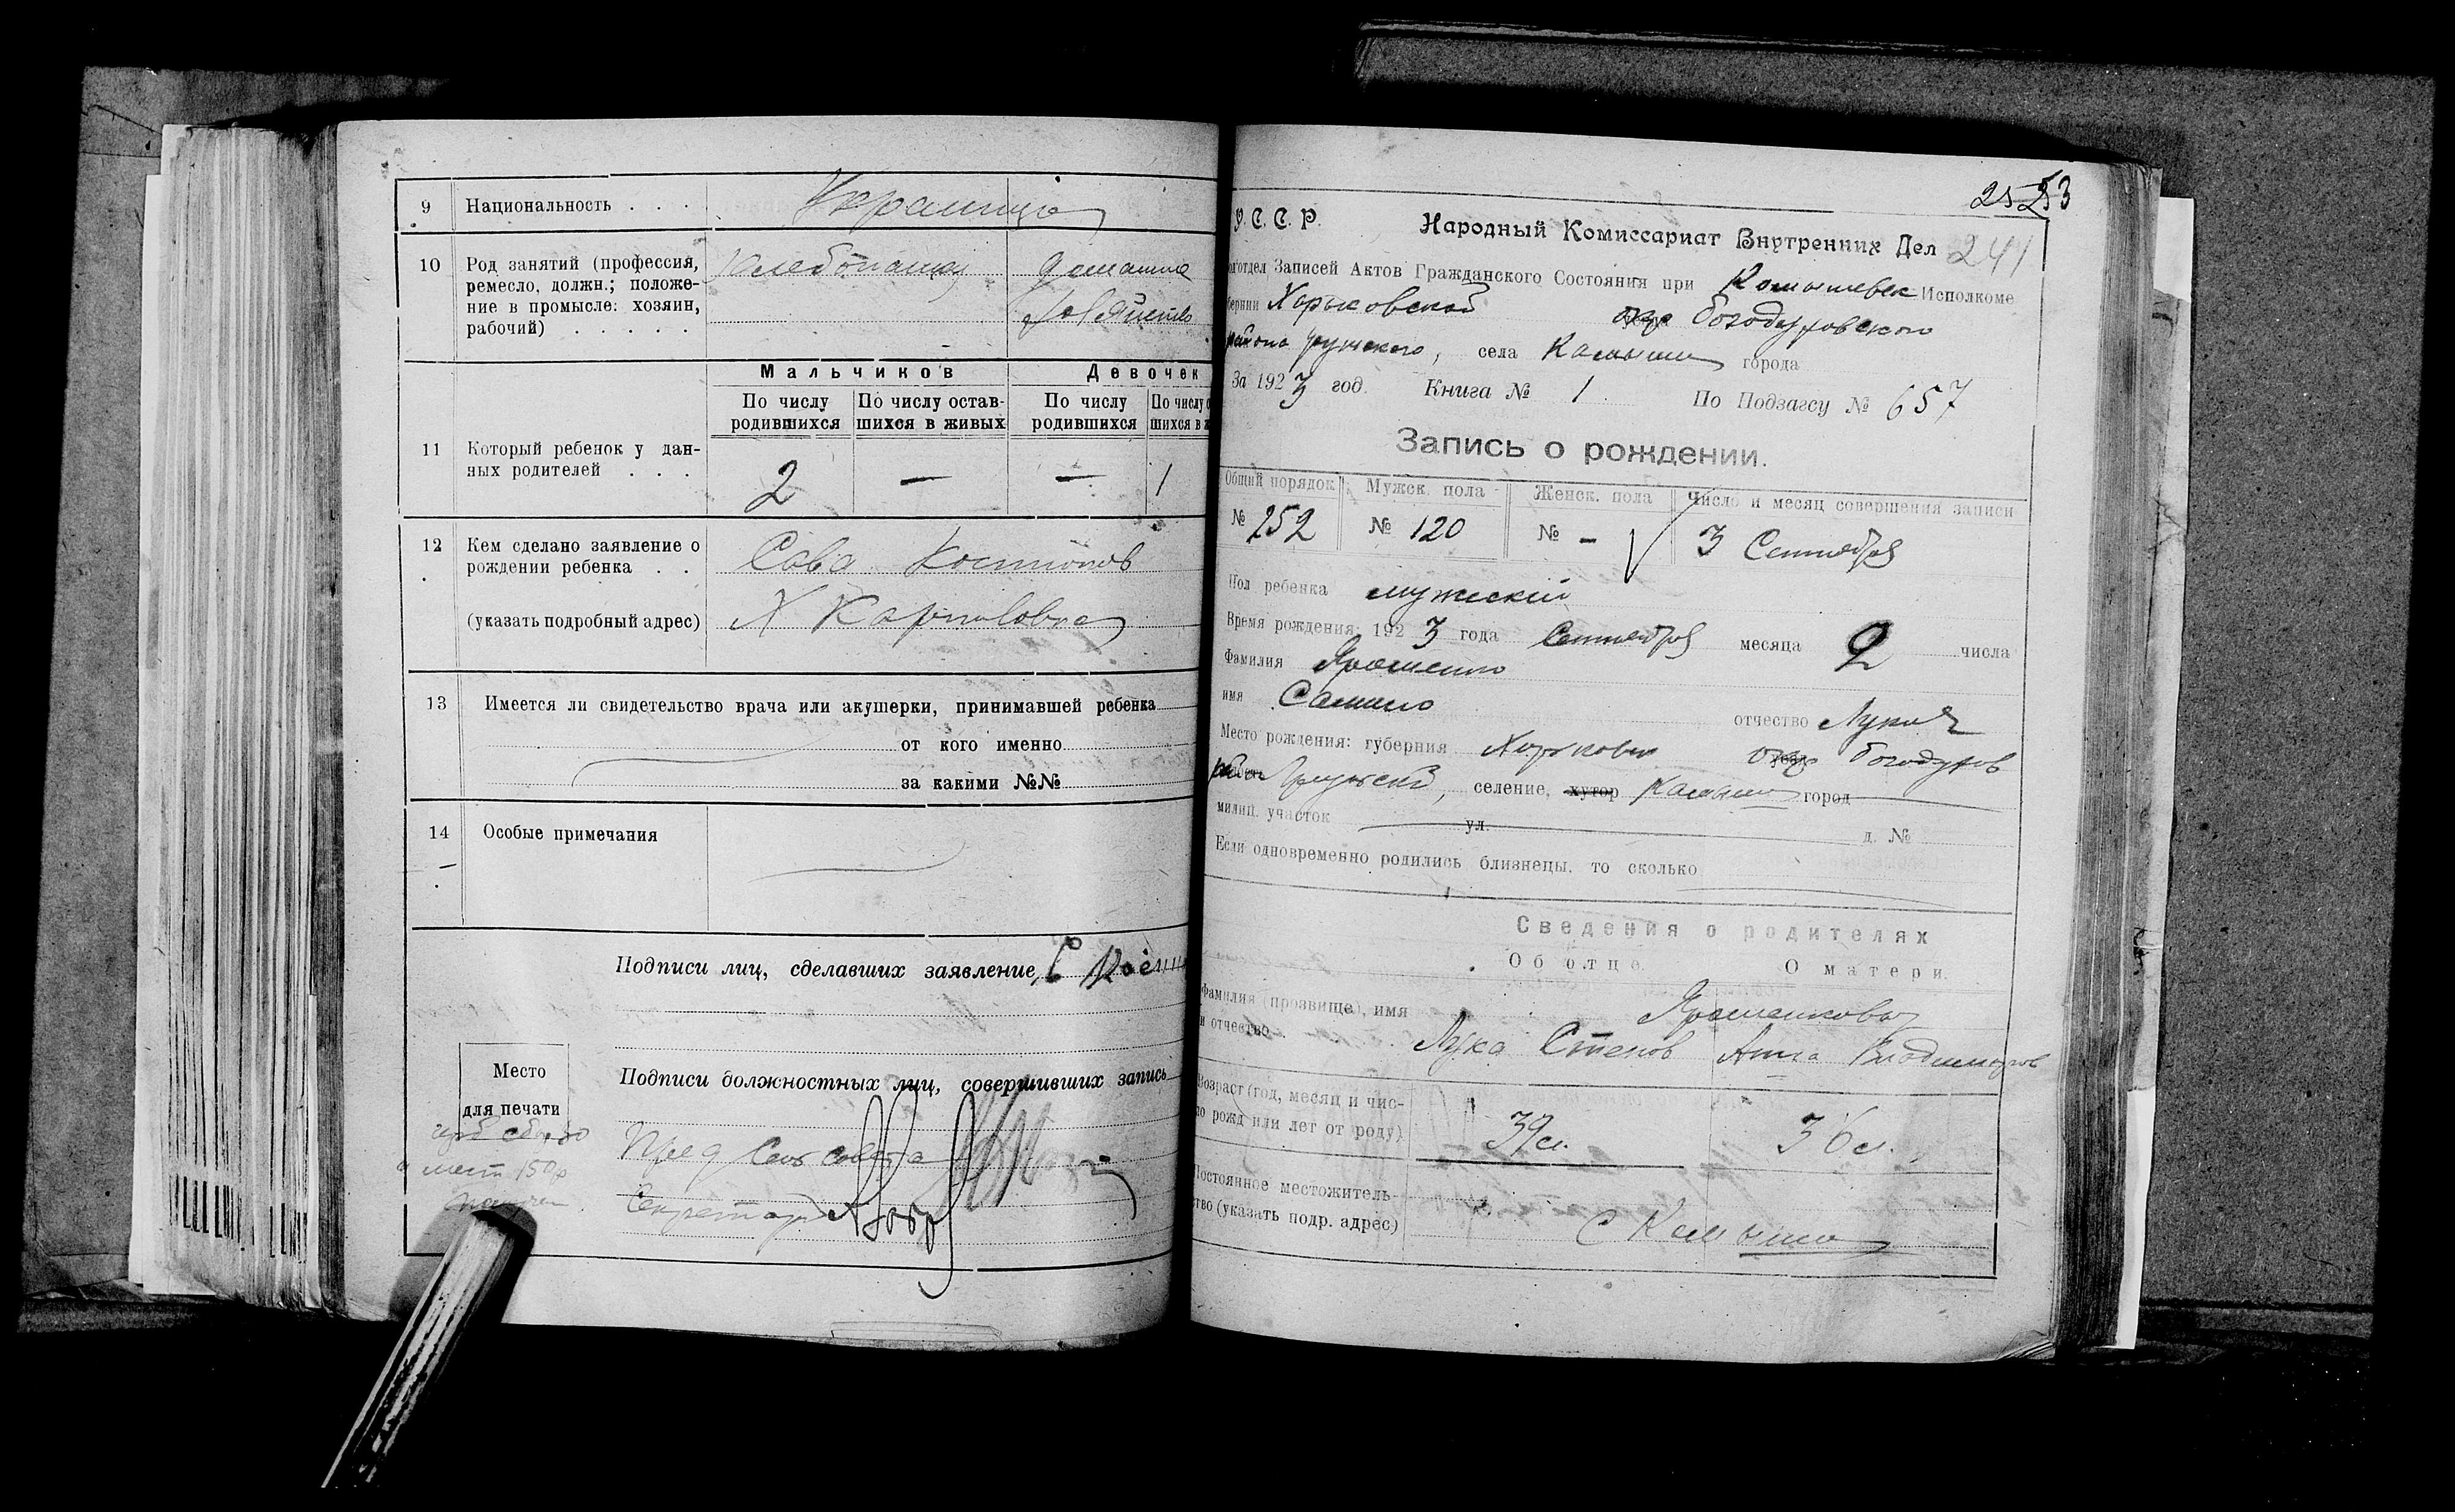 9 Национальность . . . Украинцы
10 Род занятий (профессия, Хлебопашец Домашнее
ремесло, должн.; положе-
ние в промысле: хозяин,
рабочий) . . . . .
Мальчиков Девочек
По числу По числу остав- По числу По числу о
родившихся шихся в живых родившихся шихся в ж
11 Который ребенок у дан-
ных родителей . . . 2 — — 1
12 Кем сделано заявление о Сава
рождении ребенка . .
(указать подробный адрес) Х
13 Имеется ли свидетельство врача или акушерки, принимавшей ребенка
от кого именно
за какими №№
14 Особые примечания
Подписи лиц, сделавших заявление,
Место
для печати
Подписи должностных лиц, совершивших запись
Пред Сельсовета
Секретарь
253
У.С.С.Р. Народный Комиссариат Внутренних Дел 241
отдел Записей Актов Гражданского Состояния при Исполкоме
бернии Харьковской окр Богодуховского
района, села Камыши города
За 1923 год. Книга № 1 По Подзагсу № 657
Запись о рождении.
Общий порядок Мужск. пола Женск. пола Число и месяц совершения записи
№ 252 № 120 № – 3 Сентября
Пол ребенка мужеский
Время рождения: 1923 года Сентября месяца 2 числа
Фамилия Ярошенко
имя отчество Лукич
Место рождения: губерния Харьковск окр Богодухов
селение, хутор Камыши город
милиц. участок ул. д. №
Если одновременно родились близнецы, то сколько
Сведения о родителях
Об отце О матери.
Фамилия (прозвище), имя Ярошенкова
и отчество Лука Степов Анна Владимиров
Возраст (год, месяц и чис-
ло рожд или лет от роду) 39 л. 36 л.
Постоянное местожитель-
ство (указать подр. адрес) С Камыши